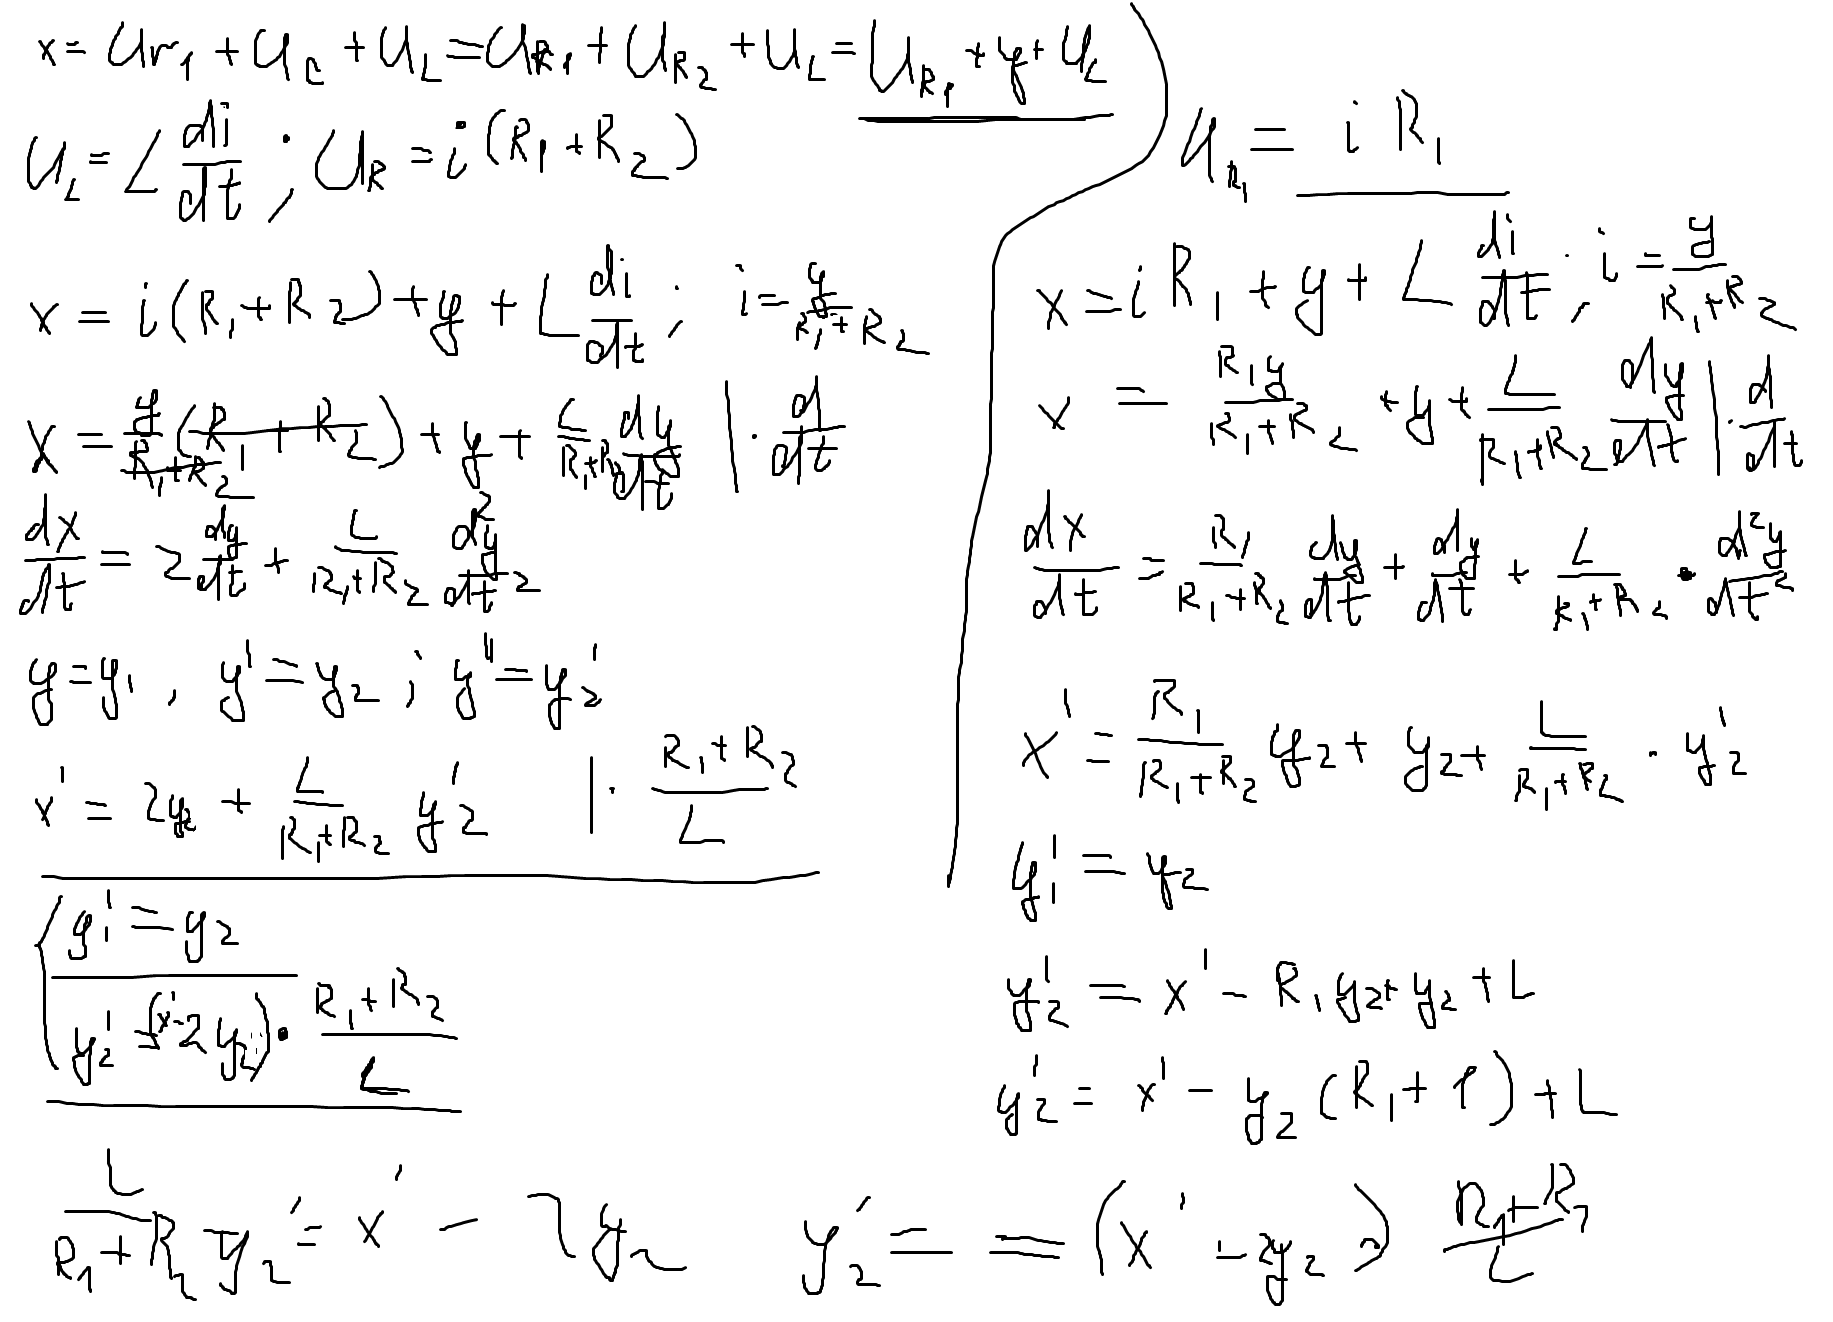 x = Ur1 + Uc + UL = UR1 + UR2 + UL = UR1 + y + UL
UL = L di/dt ; UR = i (R1 + R2)
x = i (R1 + R2) + y + L di/dt ; i = y/(R1 + R2)
x = y/(R1+R2) (R1 + R2) + y + L/(R1+R2) dy/dt | · d/dt
dx/dt = 2 dy/dt + L/(R1+R2) d²y/dt²
y = y1 , y' = y2 ; y'' = y2'
x' = 2y2 + L/(R1+R2) y2' | · (R1+R2)/L
y1' = y2
y2' = (x' - 2y2) · (R1+R2)/L
UR1 = i R1
x = i R1 + y + L di/dt ; i = y/(R1+R2)
x = R1y/(R1+R2) + y + L/(R1+R2) dy/dt | · d/dt
dx/dt = R1/(R1+R2) dy/dt + dy/dt + L/(R1+R2) · d²y/dt²
x' = R1/(R1+R2) y2 + y2 + L/(R1+R2) · y2'
y1' = y2
y2' = x' - R1y2 + y2 + L
y2' = x' - y2 (R1 + 1) + L
L/(R1+R2) y2' = x' - 2y2
y2' = = (x' - 2y2) (R1+R2)/L